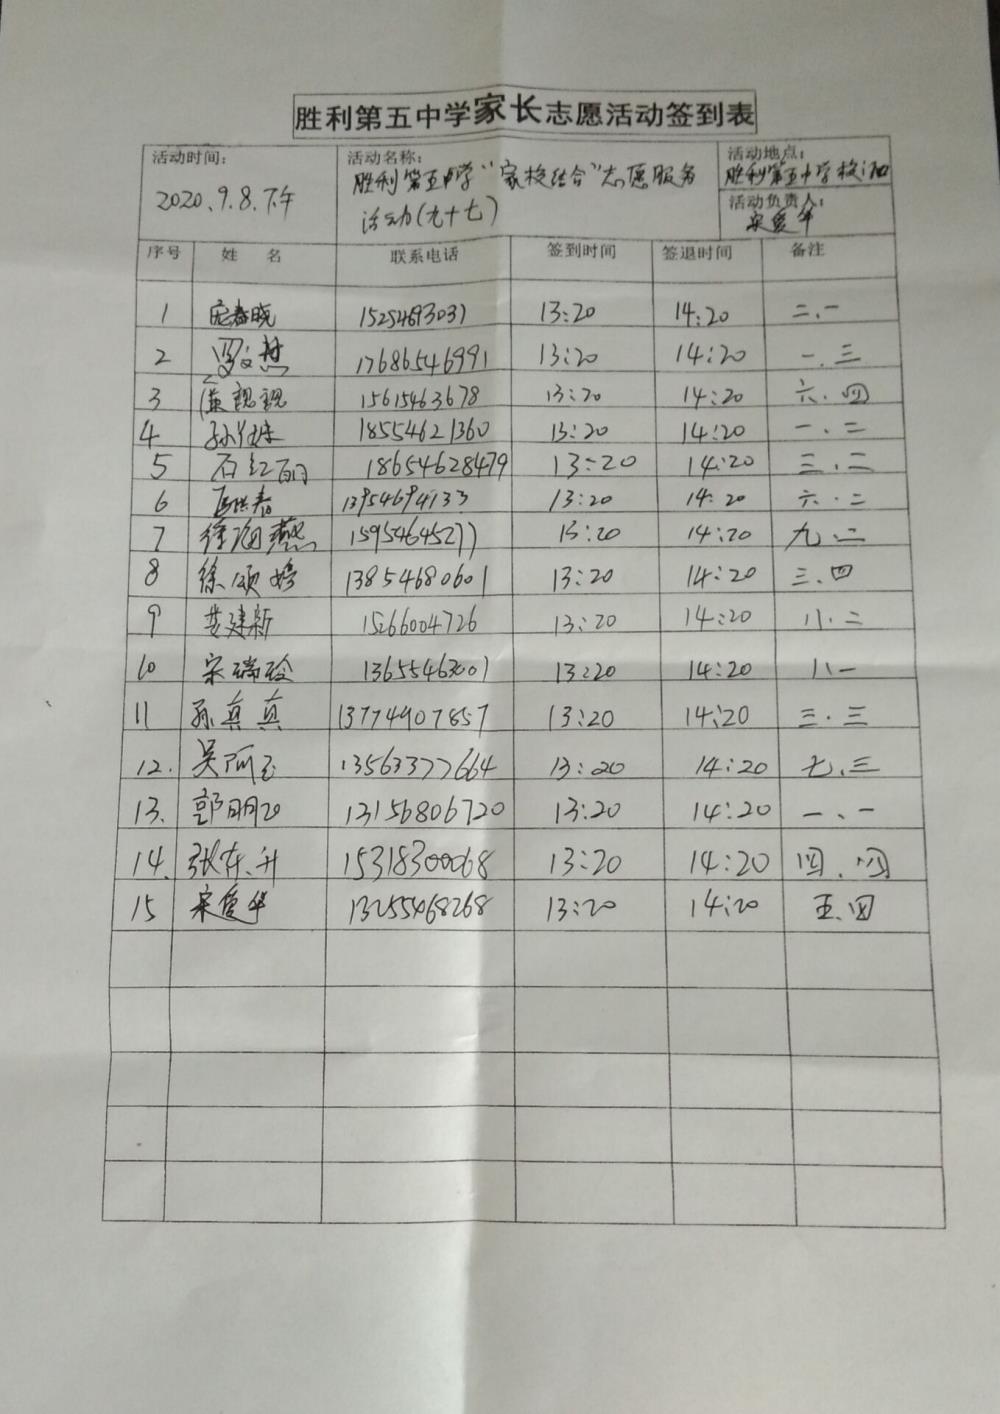 胜利第五中学家长志愿活动签到表
活动时间： 活动名称： 活动地点：
2020.9.8.下午 胜利第五中学“家校结合”志愿服务 胜利第五中学校门口
活动(九十七) 活动负责人：
宋爱华
序号 姓 名 联系电话 签到时间 签退时间 备注
1 春晓 15254693031 13:20 14:20 二.一
2 17686546991 13:20 14:20 一.三
3 15615463678 13:20 14:20 六.四
4 孙 18554621360 13:20 14:20 一.二
5 石红 18654628479 13:20 14:20 三.二
6 13954694133 13:20 14:20 六.二
7 徐海燕 15954645277 13:20 14:20 九.二
8 徐颂婷 13854680601 13:20 14:20 三.四
9 建新 15266004726 13:20 14:20 八.二
10 宋瑞玲 13655463001 13:20 14:20 八一
11 孙真真 13774907857 13:20 14:20 三.三
12. 吴阿玉 13563377664 13:20 14:20 七.三
13. 郭明 13156806720 13:20 14:20 一、一
14. 张存升 15318300068 13:20 14:20 四.四
15 宋爱华 13255468268 13:20 14:20 五.四